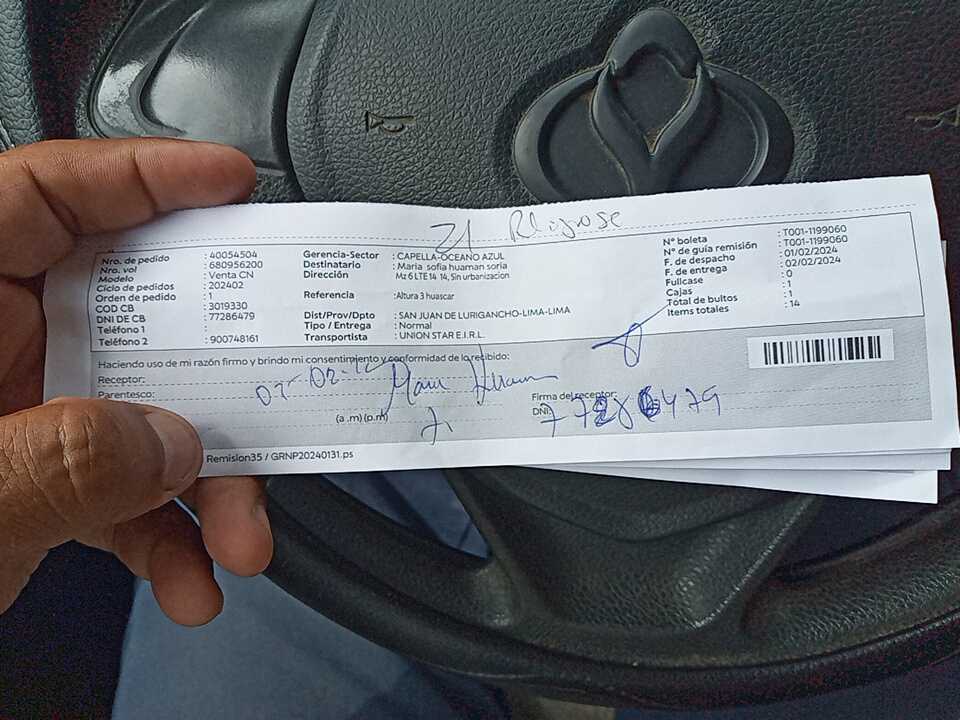 21 Rlogose
Nro. de pedido : 40054504
Nro. vol : 680956200
Modelo : Venta CN
Ciclo de pedidos : 202402
Orden de pedido : 1
COD CB : 3019330
DNI DE CB : 77286479
Teléfono 1 :
Teléfono 2 : 900748161
Gerencia-Sector : CAPELLA-OCEANO AZUL
Destinatario : Maria sofia huaman soria
Dirección Mz 6 LTE 14 14, Sin urbanizacion
Referencia :Altura 3 huascar
Dist/Prov/Dpto : SAN JUAN DE LURIGANCHO-LIMA-LIMA
Tipo / Entrega : Normal
Transportista : UNION STAR E.I.R.L.
N° boleta : T001-1199060
N° de guía remisión : T001-1199060
F. de despacho : 01/02/2024
F. de entrega : 02/02/2024
Fullcase : 0
Cajas : 1
Total de bultos : 1
Items totales : 14
Haciendo uso de mi razón firmo y brindo mi consentimiento y conformidad de lo recibido:
Receptor:
Parentesco:
(a.m) (p.m)
Firma del receptor:
DNI: 77286479
Remision35 / GRNP20240131.ps